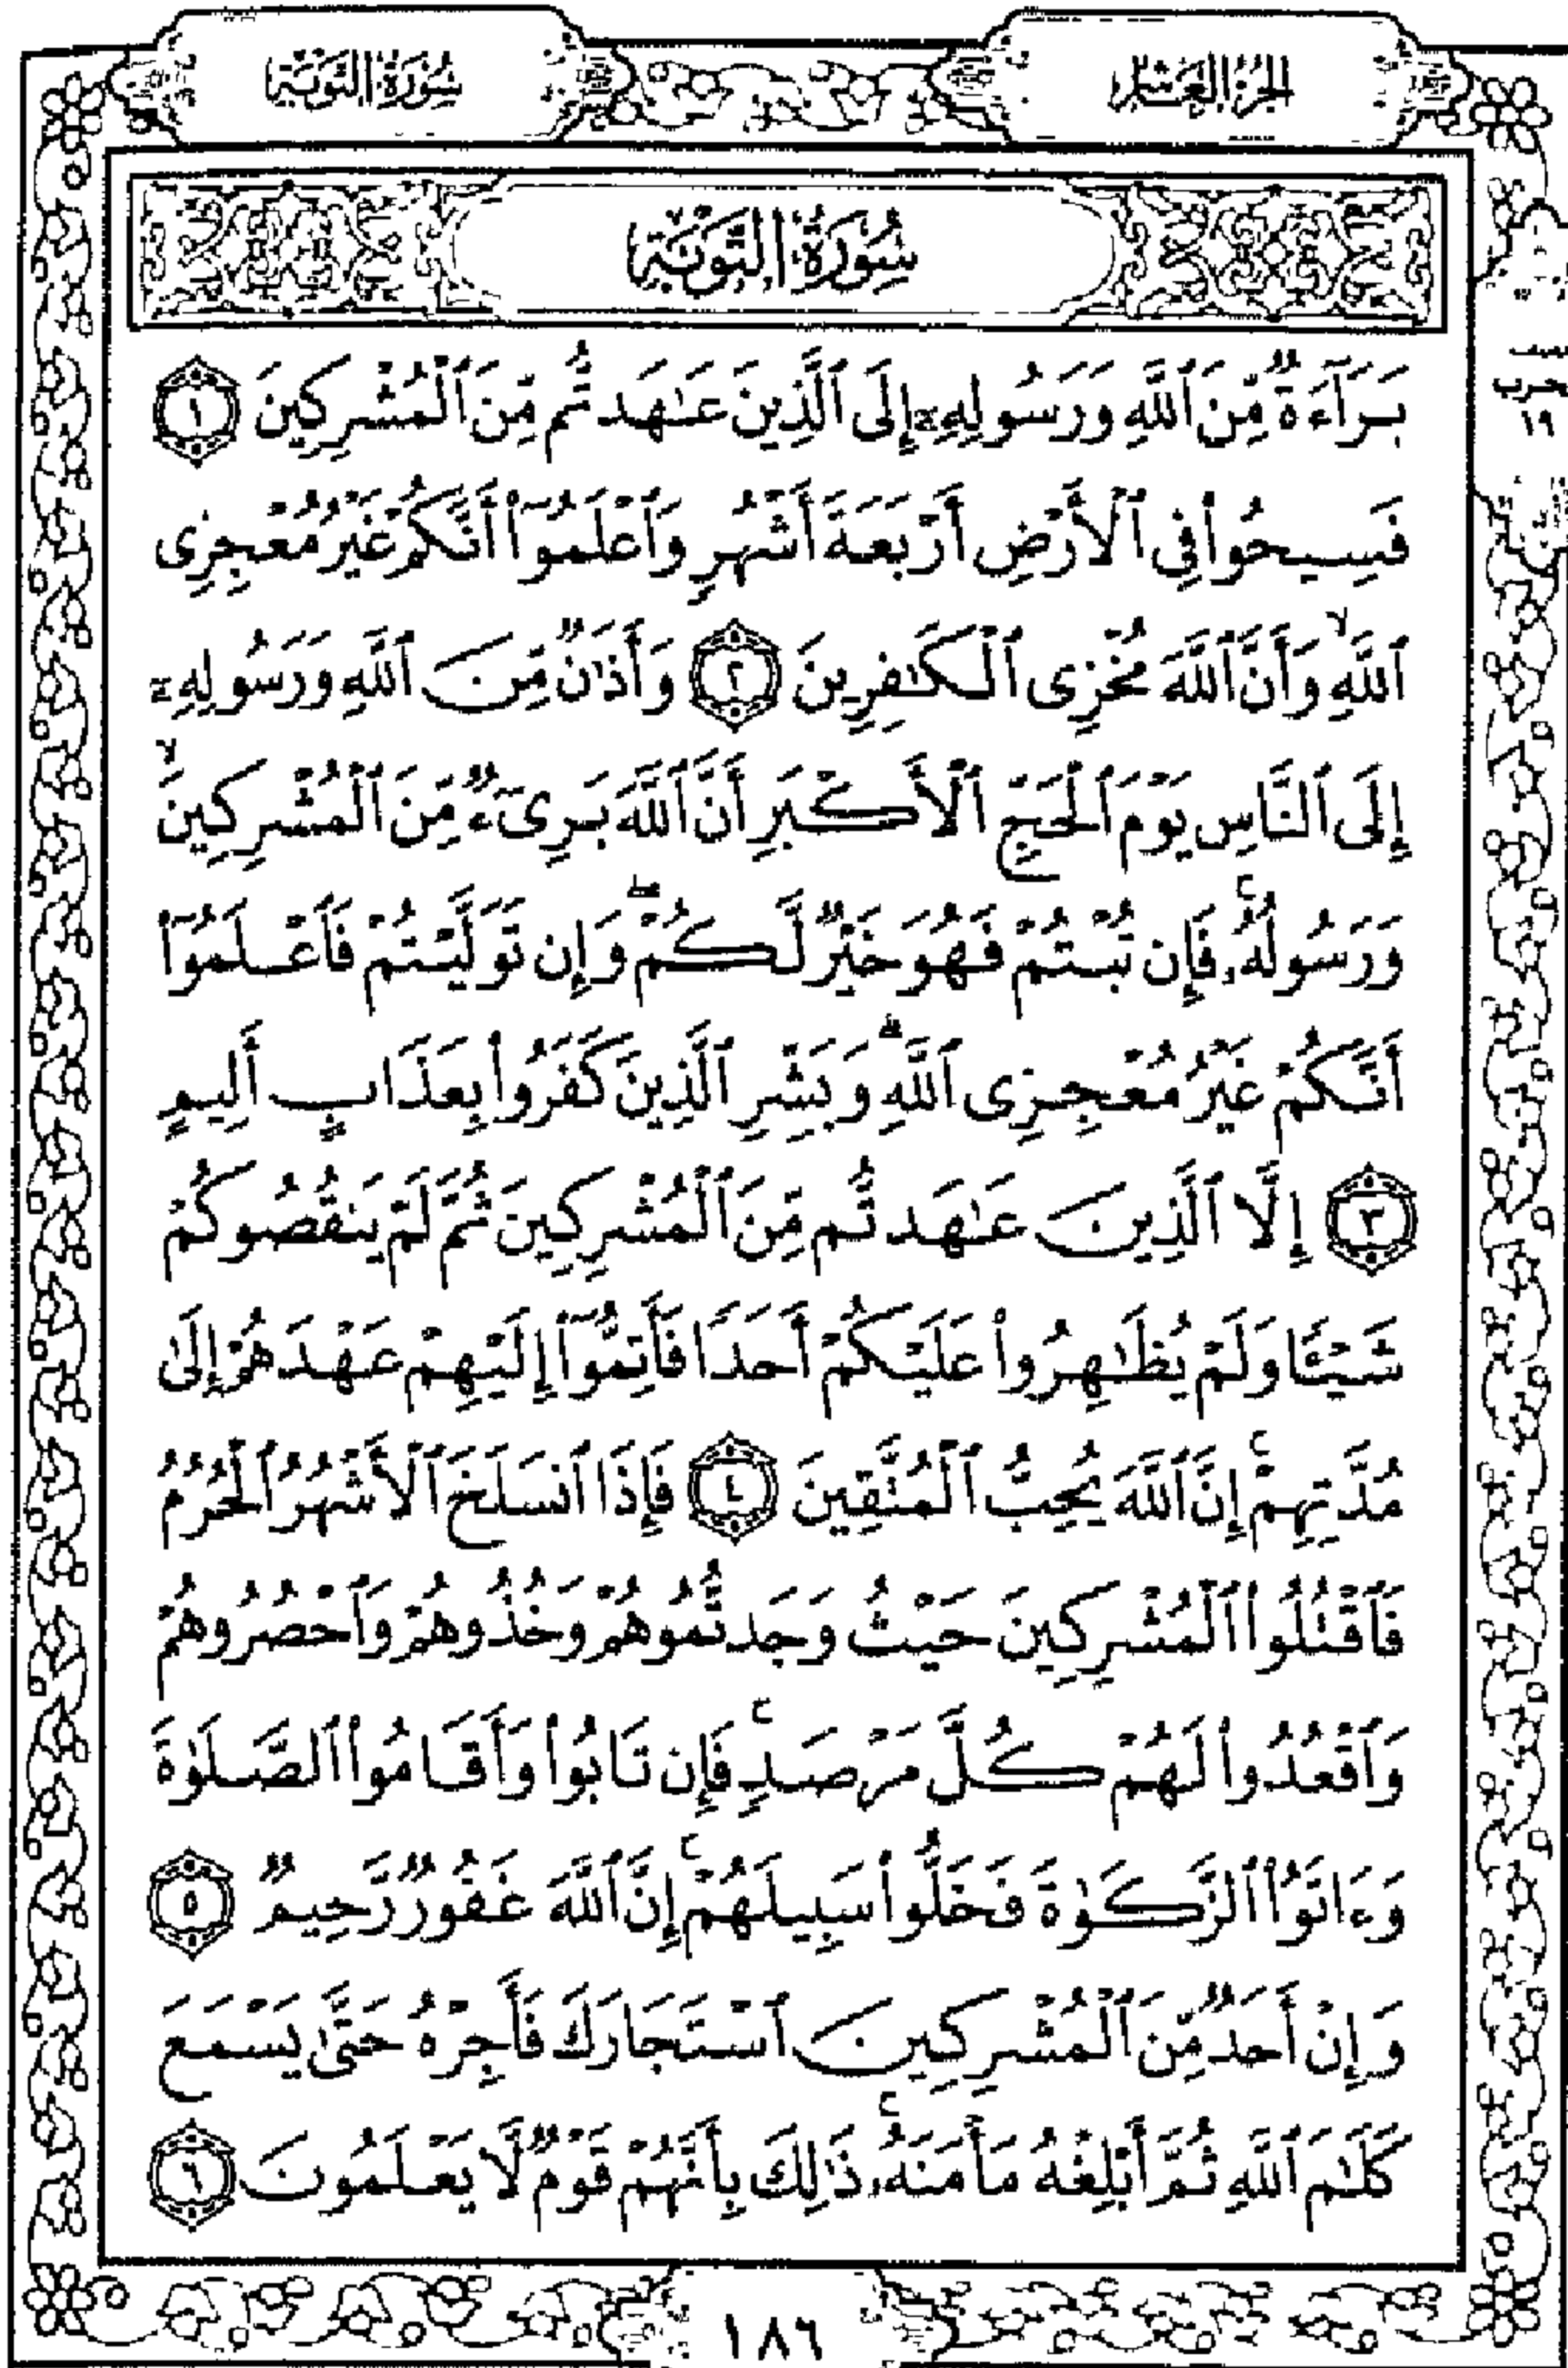 الجزء العاشر
سورة التوبة
سُورَةُ التَّوْبَةِ
حزب
١٩
بَرَآءَةٌ مِّنَ ٱللَّهِ وَرَسُولِهِۦٓ إِلَى ٱلَّذِينَ عَٰهَدتُّم مِّنَ ٱلْمُشْرِكِينَ ١
فَسِيحُوا۟ فِى ٱلْأَرْضِ أَرْبَعَةَ أَشْهُرٍ وَٱعْلَمُوٓا۟ أَنَّكُمْ غَيْرُ مُعْجِزِى
ٱللَّهِ ۙ وَأَنَّ ٱللَّهَ مُخْزِى ٱلْكَٰفِرِينَ ٢ وَأَذَٰنٌ مِّنَ ٱللَّهِ وَرَسُولِهِۦٓ
إِلَى ٱلنَّاسِ يَوْمَ ٱلْحَجِّ ٱلْأَكْبَرِ أَنَّ ٱللَّهَ بَرِىٓءٌ مِّنَ ٱلْمُشْرِكِينَ ۙ
وَرَسُولُهُۥ ۚ فَإِن تُبْتُمْ فَهُوَ خَيْرٌ لَّكُمْ ۖ وَإِن تَوَلَّيْتُمْ فَٱعْلَمُوٓا۟
أَنَّكُمْ غَيْرُ مُعْجِزِى ٱللَّهِ ۗ وَبَشِّرِ ٱلَّذِينَ كَفَرُوا۟ بِعَذَابٍ أَلِيمٍ
٣ إِلَّا ٱلَّذِينَ عَٰهَدتُّم مِّنَ ٱلْمُشْرِكِينَ ثُمَّ لَمْ يَنقُصُوكُمْ
شَيْـًٔا وَلَمْ يُظَٰهِرُوا۟ عَلَيْكُمْ أَحَدًا فَأَتِمُّوٓا۟ إِلَيْهِمْ عَهْدَهُمْ إِلَىٰ
مُدَّتِهِمْ ۚ إِنَّ ٱللَّهَ يُحِبُّ ٱلْمُتَّقِينَ ٤ فَإِذَا ٱنسَلَخَ ٱلْأَشْهُرُ ٱلْحُرُمُ
فَٱقْتُلُوا۟ ٱلْمُشْرِكِينَ حَيْثُ وَجَدتُّمُوهُمْ وَخُذُوهُمْ وَٱحْصُرُوهُمْ
وَٱقْعُدُوا۟ لَهُمْ كُلَّ مَرْصَدٍ ۚ فَإِن تَابُوا۟ وَأَقَامُوا۟ ٱلصَّلَوٰةَ
وَءَاتَوُا۟ ٱلزَّكَوٰةَ فَخَلُّوا۟ سَبِيلَهُمْ ۚ إِنَّ ٱللَّهَ غَفُورٌ رَّحِيمٌ ٥
وَإِنْ أَحَدٌ مِّنَ ٱلْمُشْرِكِينَ ٱسْتَجَارَكَ فَأَجِرْهُ حَتَّىٰ يَسْمَعَ
كَلَٰمَ ٱللَّهِ ثُمَّ أَبْلِغْهُ مَأْمَنَهُۥ ۚ ذَٰلِكَ بِأَنَّهُمْ قَوْمٌ لَّا يَعْلَمُونَ ٦
١٨٦